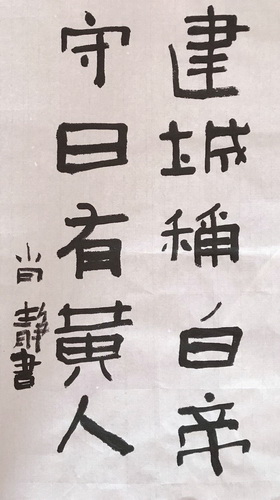 建城稱白帝
守日有黄人
尚靜書